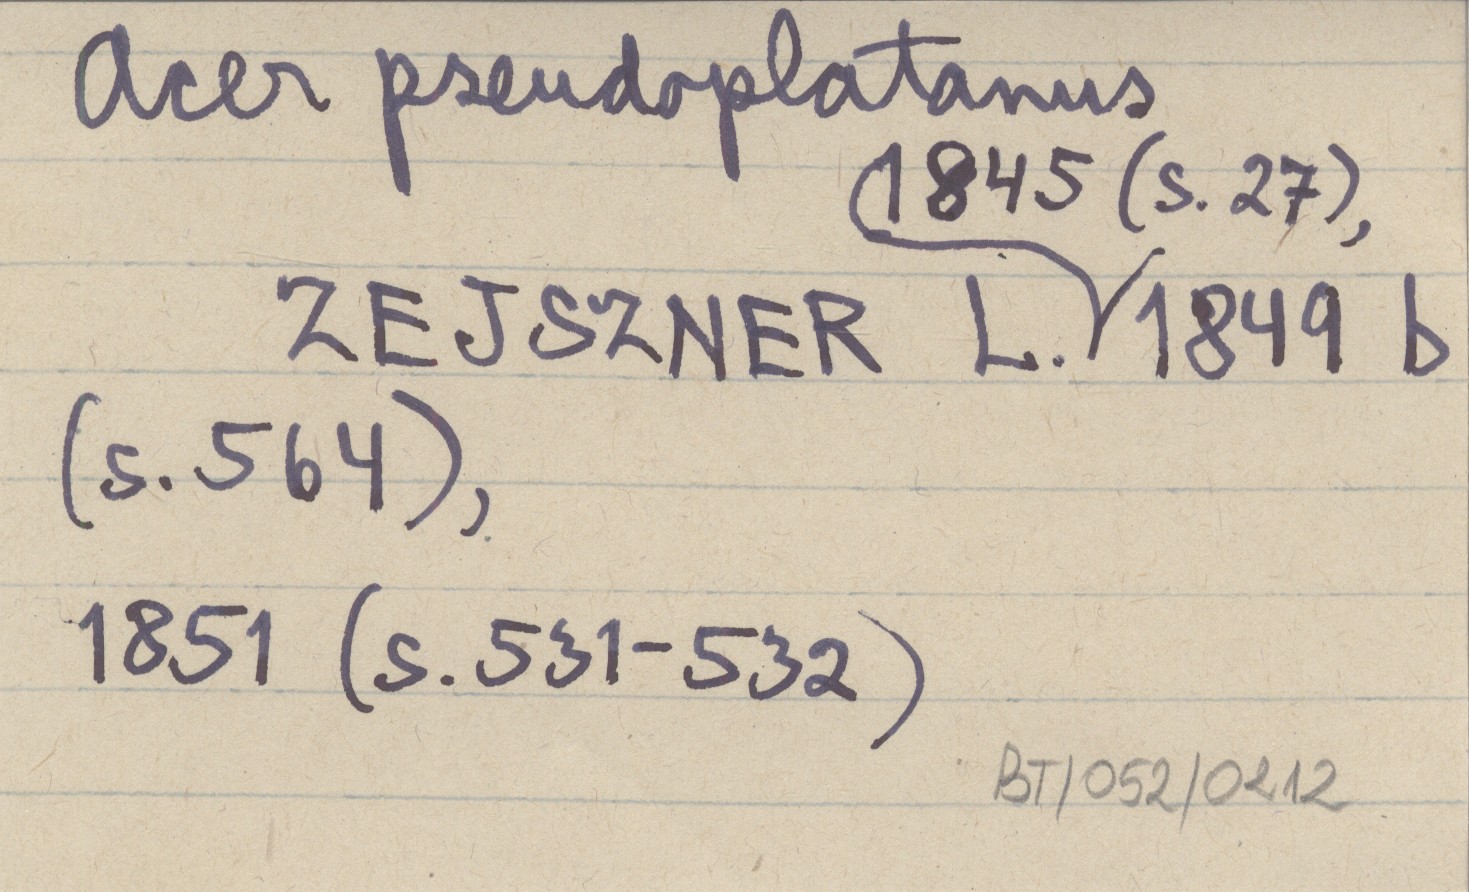 Acer pseudoplatanus
1845 (s. 27),
ZEJSZNER L. 1849 b
(s. 564),
1851 (s. 531-532)
BT/052/0212